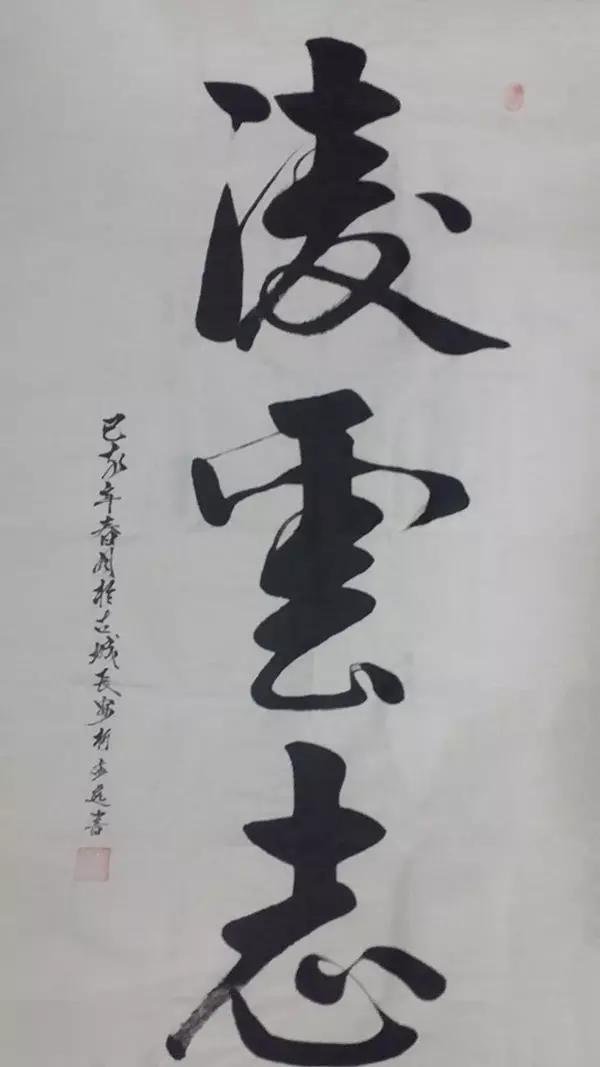 凌雲志
己亥年春月於古城長安
書